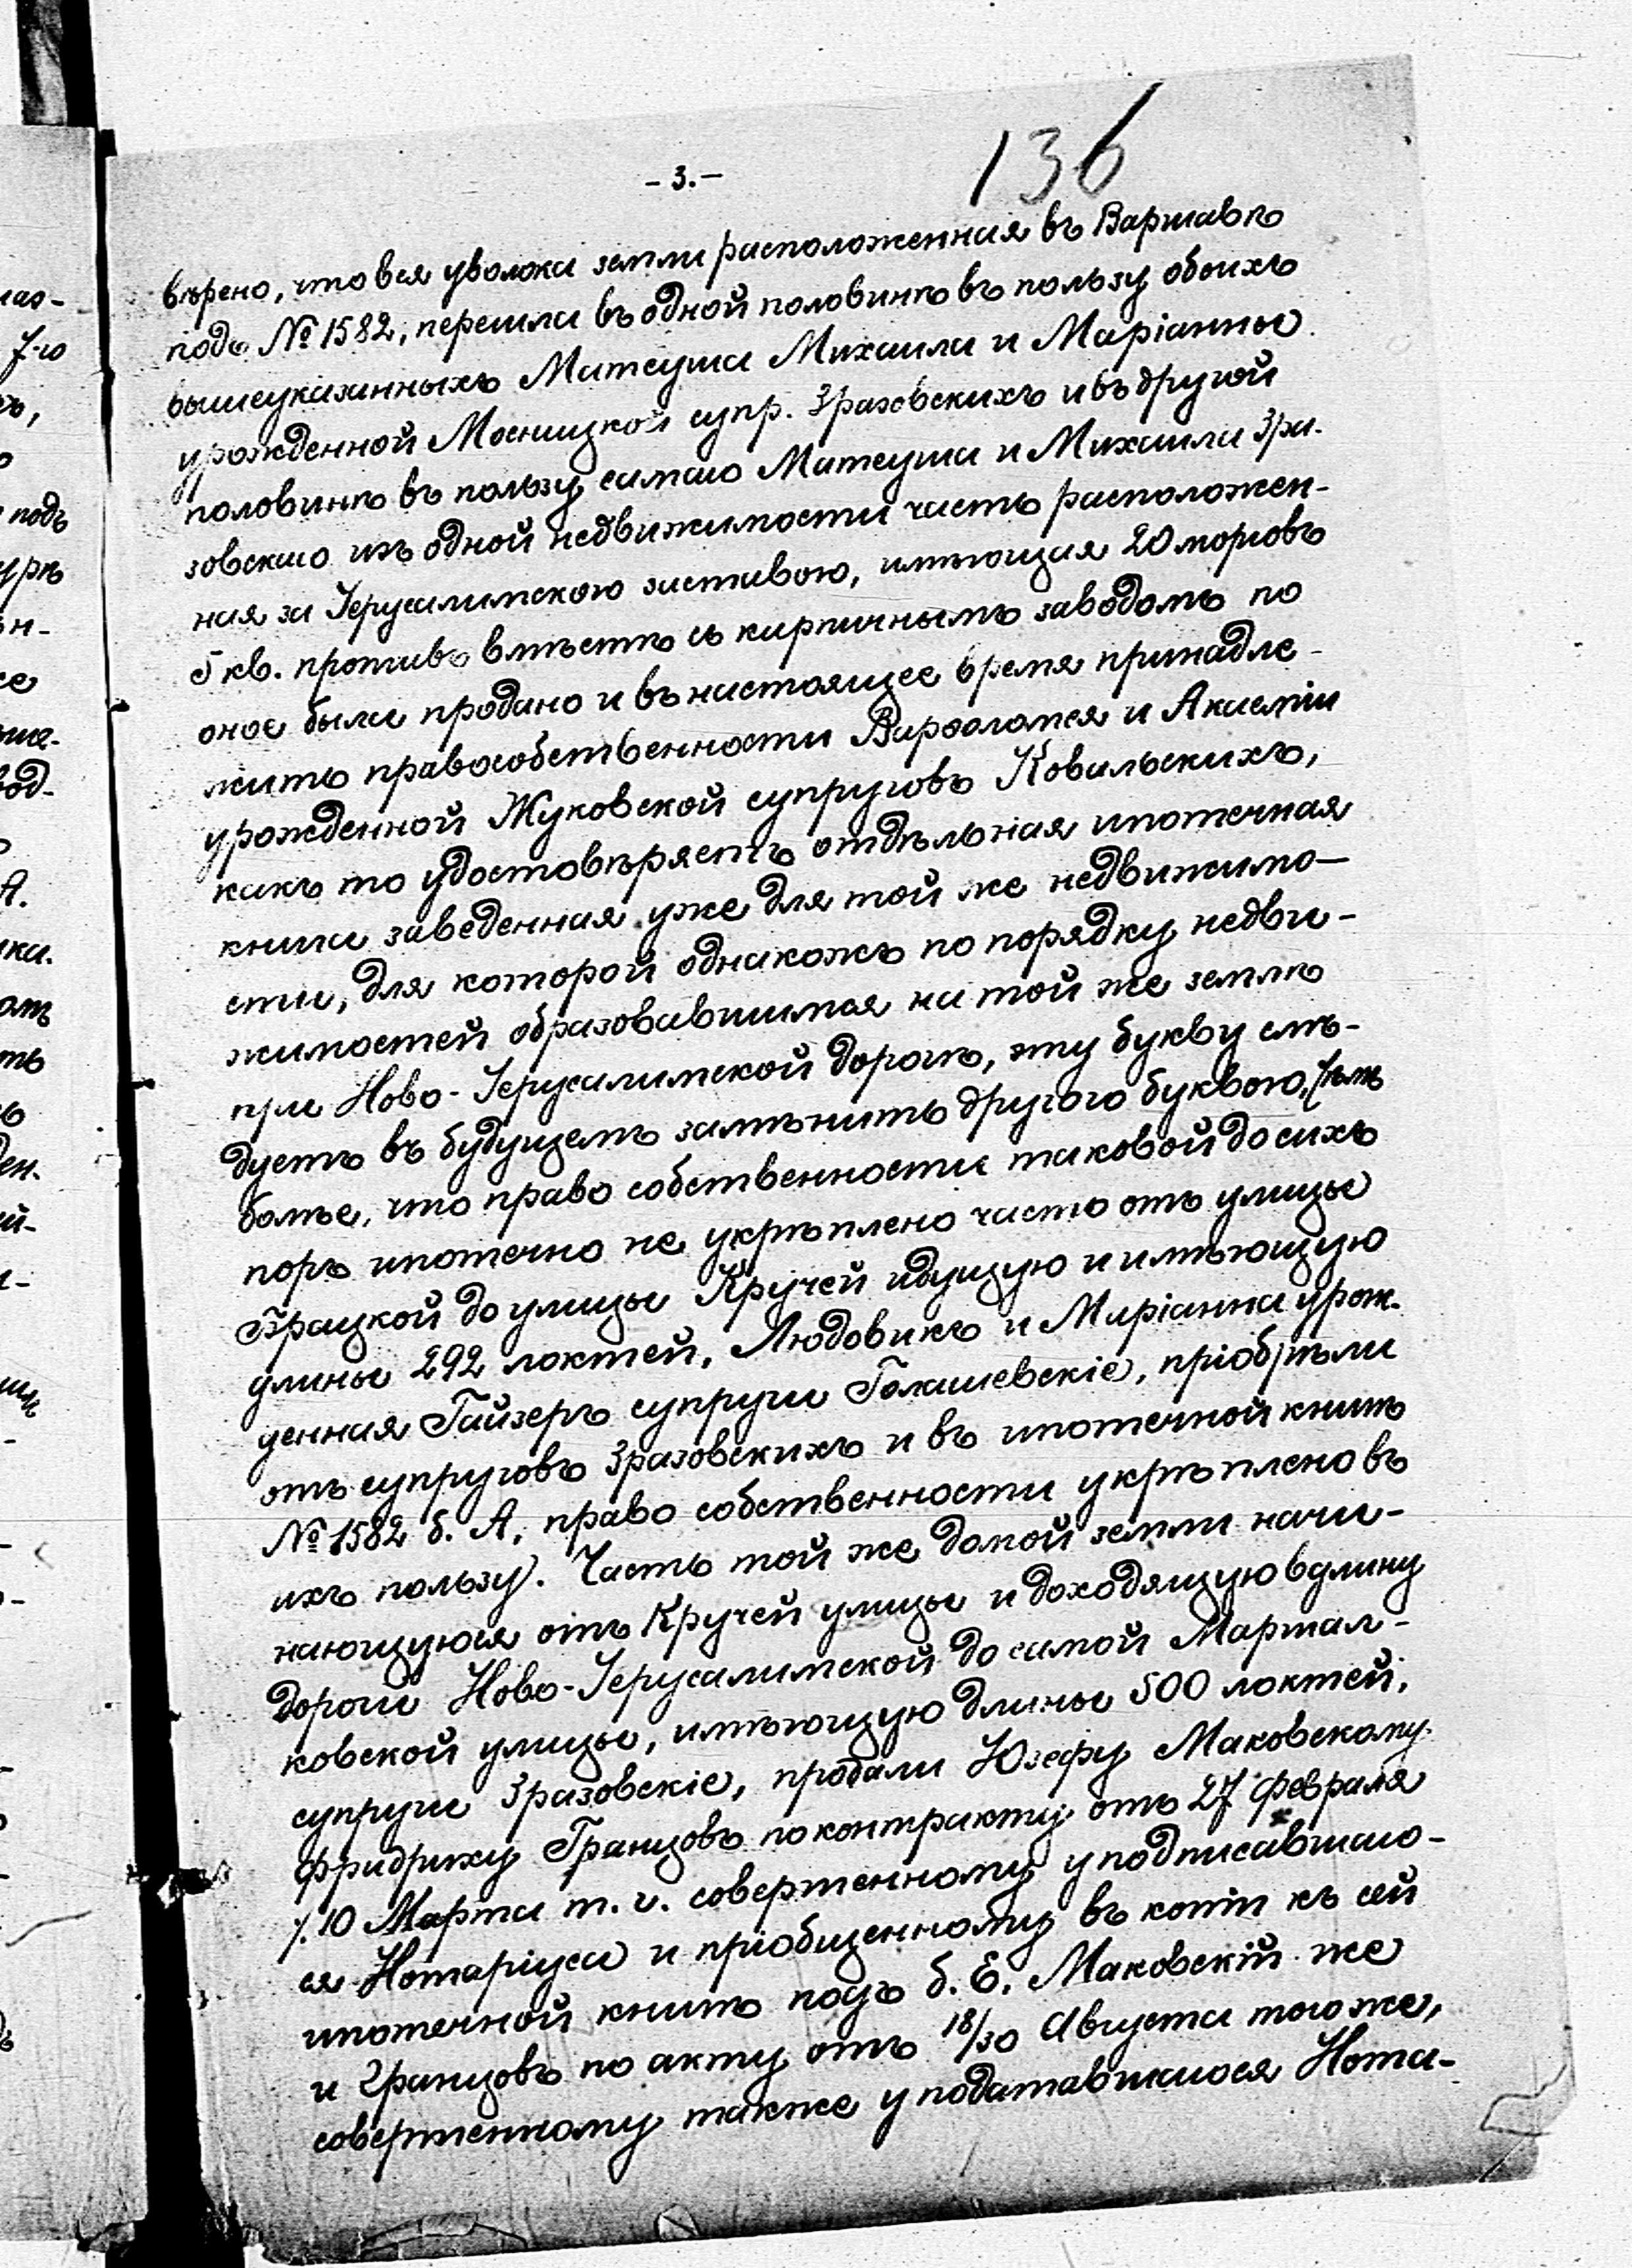 136
- 3. -
вѣрено, что вся уволока земли расположенная въ Варшавѣ
подъ № 1582, перешла въ одной половинѣ въ пользу обоихъ
вышеуказанныхъ Матеуша Михаила и Маріанны
урожденной Мосницкой супр. Зразовскихъ и въ другой
половинѣ въ пользу самаго Матеуша и Михаила Зра-
зовскаго изъ одной недвижимости часть расположен-
ная за Іерусалимскою заставою, имѣющая 20 морговъ
5 кв. прентовъ вмѣстѣ съ кирпичнымъ заводомъ по
оное были продано и въ настоящее время принадле-
житъ право собственности Варфоломея и Аксеміи
урожденной Жуковской супруговъ Ковальскихъ,
какъ то удостовѣряетъ отдѣльная ипотечная
книга заведенная уже для той же недвижимо-
сти, для которой однакожъ по порядку недви-
жимостей образовавшимся на той же землѣ
при Ново-Іерусалимской дорогѣ, эту букву слѣ-
дуетъ въ будущемъ замѣнить другого буквою, тѣмъ
болѣе, что право собственности таковой до сихъ
поръ ипотечно не укрѣплено часть отъ улицы
Брацкой до улицы Кручей идущую и имѣющую
длины 292 локтей, Людовикъ и Маріанна урож-
денная Гайзеръ супруги Голашевскіе, пріобрѣли
отъ супруговъ Зразовскихъ и въ ипотечной книгѣ
№ 1582 б. А, право собственности укрѣплено въ
ихъ пользу. Часть той же самой земли начи-
нающуюся отъ Кручей улицы и доходящую въ длину
дороги Ново-Іерусалимской до самой Маршал-
ковской улицы, имѣющую длины 500 локтей,
супруги Зразовскіе, продали Юзефу Маковскому
Фридриху Гранцовъ по контракту отъ 27 февраля
/.10 Марта т. г. совершенному у подписавшаго-
ся Нотаріуса и пріобщенному въ копіи къ сей
ипотечной книгѣ подъ б. Е. Маковскій же
и Гранцовъ по акту отъ 18/30 Августа того же,
совершенному также у подписавшагося Нота-